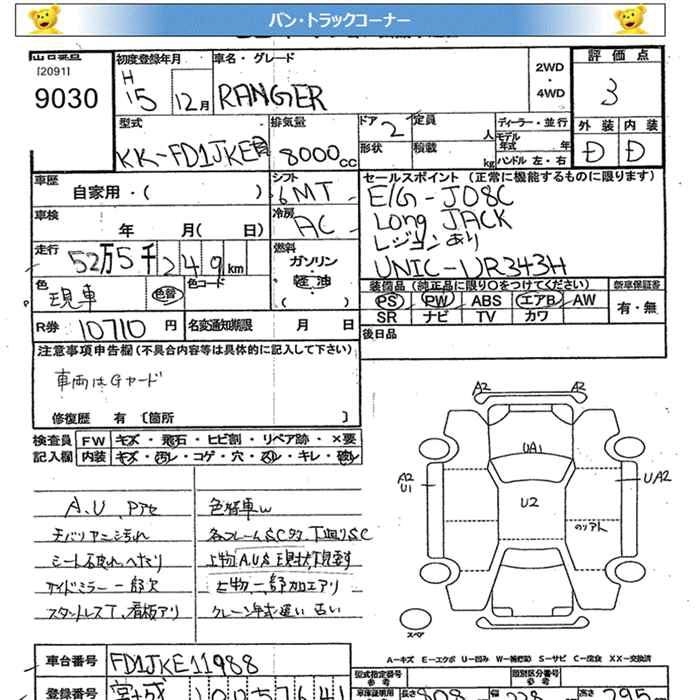 バン・トラックコーナー
[2091]
9030
初度登録年月
H
15 12月
車名・グレード
RANGER
2WD
・
4WD
評価点
3
外装 内装
D D
型式
KK-FD1JKE
排気量
8000cc
ドア
2
定員
人
形状
積載
kg
ディーラー・並行
モデル年式 年
ハンドル 左・右
車歴
自家用・( )
シフト
6MT
セールスポイント (正常に機能するものに限ります)
E/G-J08C
Long JACK
レジコンあり
UNIC-UR343H
車検
年 月( 日)
冷房
AC
走行
52万5千249km
燃料
ガソリン
・
軽油
(
色
現車
色替
色コード
装備品 (純正品に限り○をつけてください)
PS PW ABS エアB AW
SR ナビ TV カワ
新車保証書
有・無
R券 10710円
名変通知期限 月 日
後日品
注意事項申告欄 (不具合内容等は具体的に記入して下さい)
車両はGヤード
修復歴 有 〔箇所 〕
検査員
記入欄
FW キズ・飛石・ヒビ割・リペア跡・×要
内装 キズ・汚レ・コゲ・穴・スレ・キレ・破レ
A.U.Pアセ
色替車w
天バリヤニ汚れ
各フレームSCタタ、下回りSC
シート破れ、へたり
上物A.U.S現状、下見要
サイドミラー一部欠
上物一部加工アリ
スタットレスT、看板アリ
クレーン年式違い古い
A2 A2
UA1
A2
U1
UA2
U2
のリアト
スペア
A-キズ E-エクボ U-凹み W-補修跡 S-サビ C-腐食 XX-交換済
車台番号
FD1JKE11988
型式指定番号
参考
類別区分番号
参考
登録番号
宮城
長さ
808
cm
幅
228
高さ
295